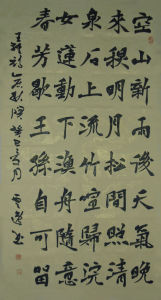 空山新雨後天氣晚
來穐明月松間照清
泉石上流竹喧歸浣
女蓮動下漁舟隨意
春芳歇王孫自可留
王維詩山居秋暝癸巳月